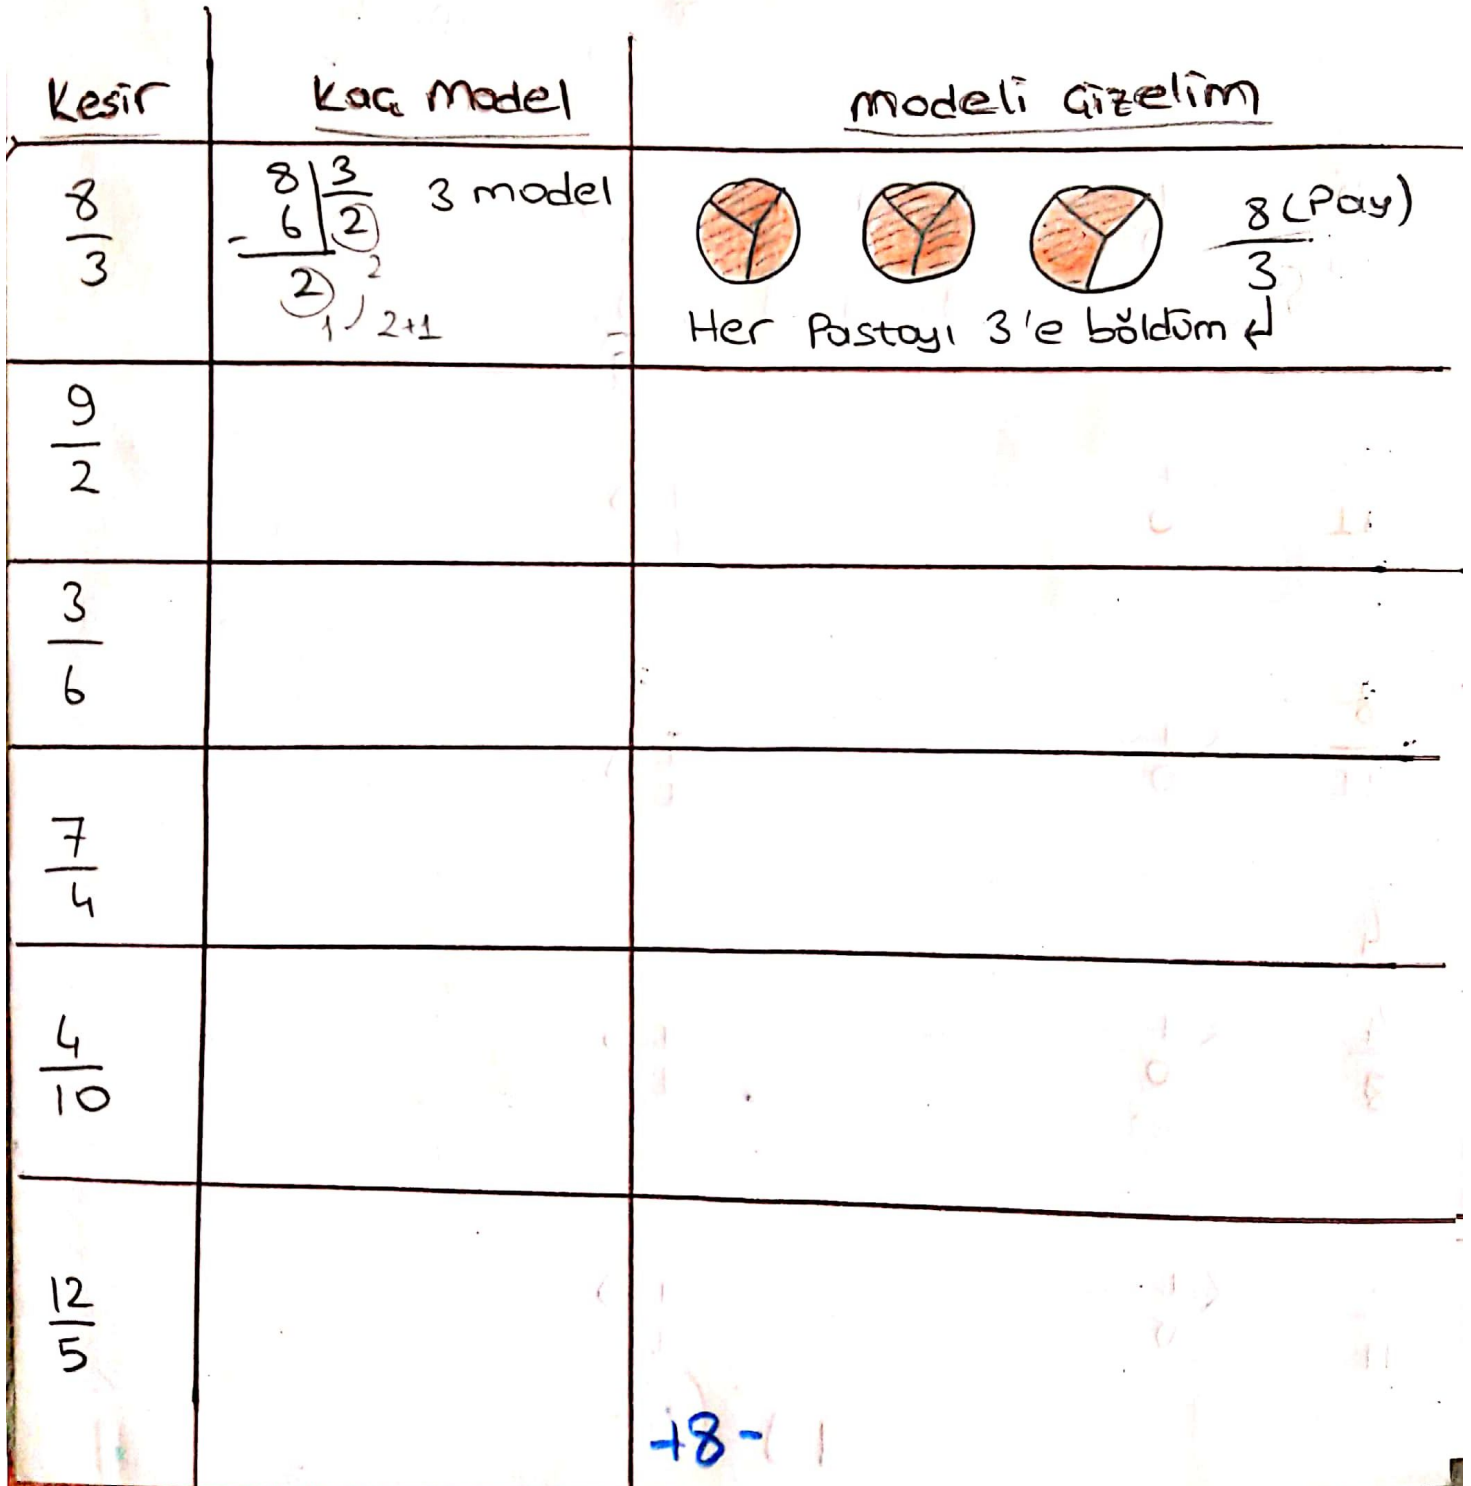 Kesir Kaç Model modeli Çizelim
8/3
8 3 3 model
- 6 2
2 2
1 2+1
8 (Pay)
3
Her Pastayı 3'e böldüm
9/2
3/6
7/4
4/10
12/5
-18-